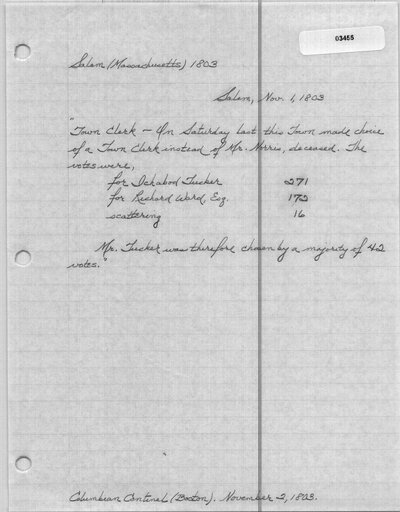 03455
Salem (Massachusetts) 1803
Salem, Nov. 1, 1803
"Town Clerk — On Saturday last this Town made choice
of a Town Clerk instead of Mr. Norris, deceased. The
votes were,
for Ichabod Tucker 271
for Richard Ward, Esq. 172
scattering 16
Mr. Tucker was therefore chosen by a majority of 42
votes."
Columbian Centinel (Boston). November 2, 1803.